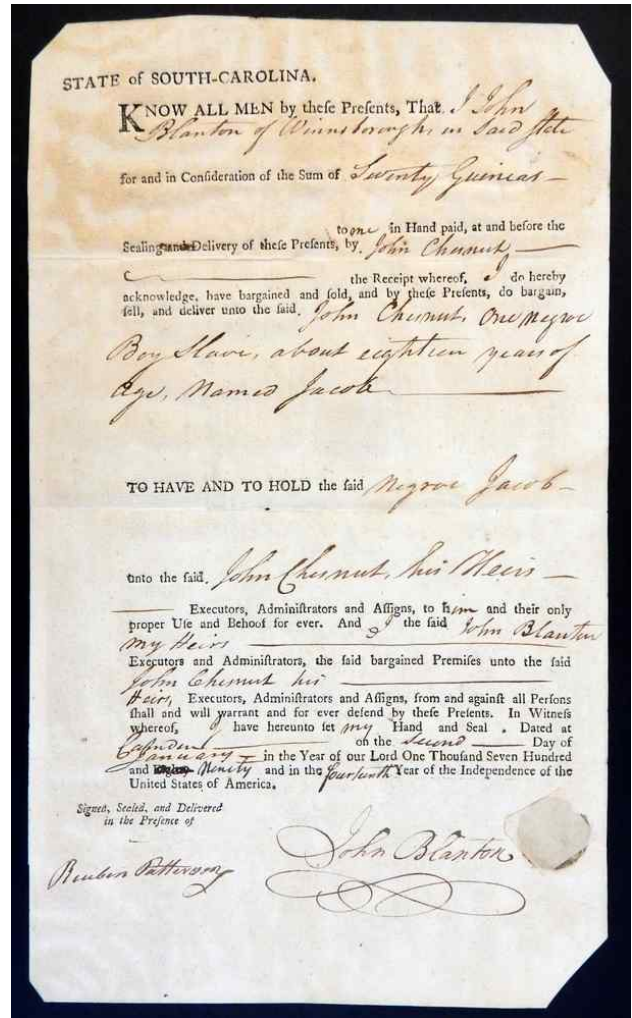 STATE of SOUTH-CAROLINA.
KNOW ALL MEN by theſe Preſents, That I John
Blanton of Winnsborough, in Said State
for and in Conſideration of the Sum of Seventy Guineas —
to me in Hand paid, at and before the
Sealing and Delivery of theſe Preſents, by John Chesnut —
— the Receipt whereof, I do hereby
acknowledge, have bargained and ſold, and by theſe Preſents, do bargain,
ſell, and deliver unto the ſaid John Chesnut, One negroe
Boy Slave, about eighteen years of
Age, Named Jacob —
TO HAVE AND TO HOLD the ſaid Negroe Jacob —
unto the ſaid John Chesnut, his Heirs —
— Executors, Adminiſtrators and Aſſigns, to him and their only
proper Uſe and Behoof for ever. And I the ſaid John Blanton
my Heirs —
Executors and Adminiſtrators, the ſaid bargained Premiſes unto the ſaid
John Chesnut his —
Heirs, Executors, Adminiſtrators and Aſſigns, from and againſt all Perſons
ſhall and will warrant and for ever defend by theſe Preſents. In Witneſs
whereof, I have hereunto ſet my Hand and Seal . Dated at
Camden — on the Second — Day of
January — in the Year of our Lord One Thouſand Seven Hundred
and Ninety and in the fourteenth Year of the Independence of the
United States of America.
Signed, Sealed, and Delivered
in the Preſence of
John Blanton
Reuben Patterson